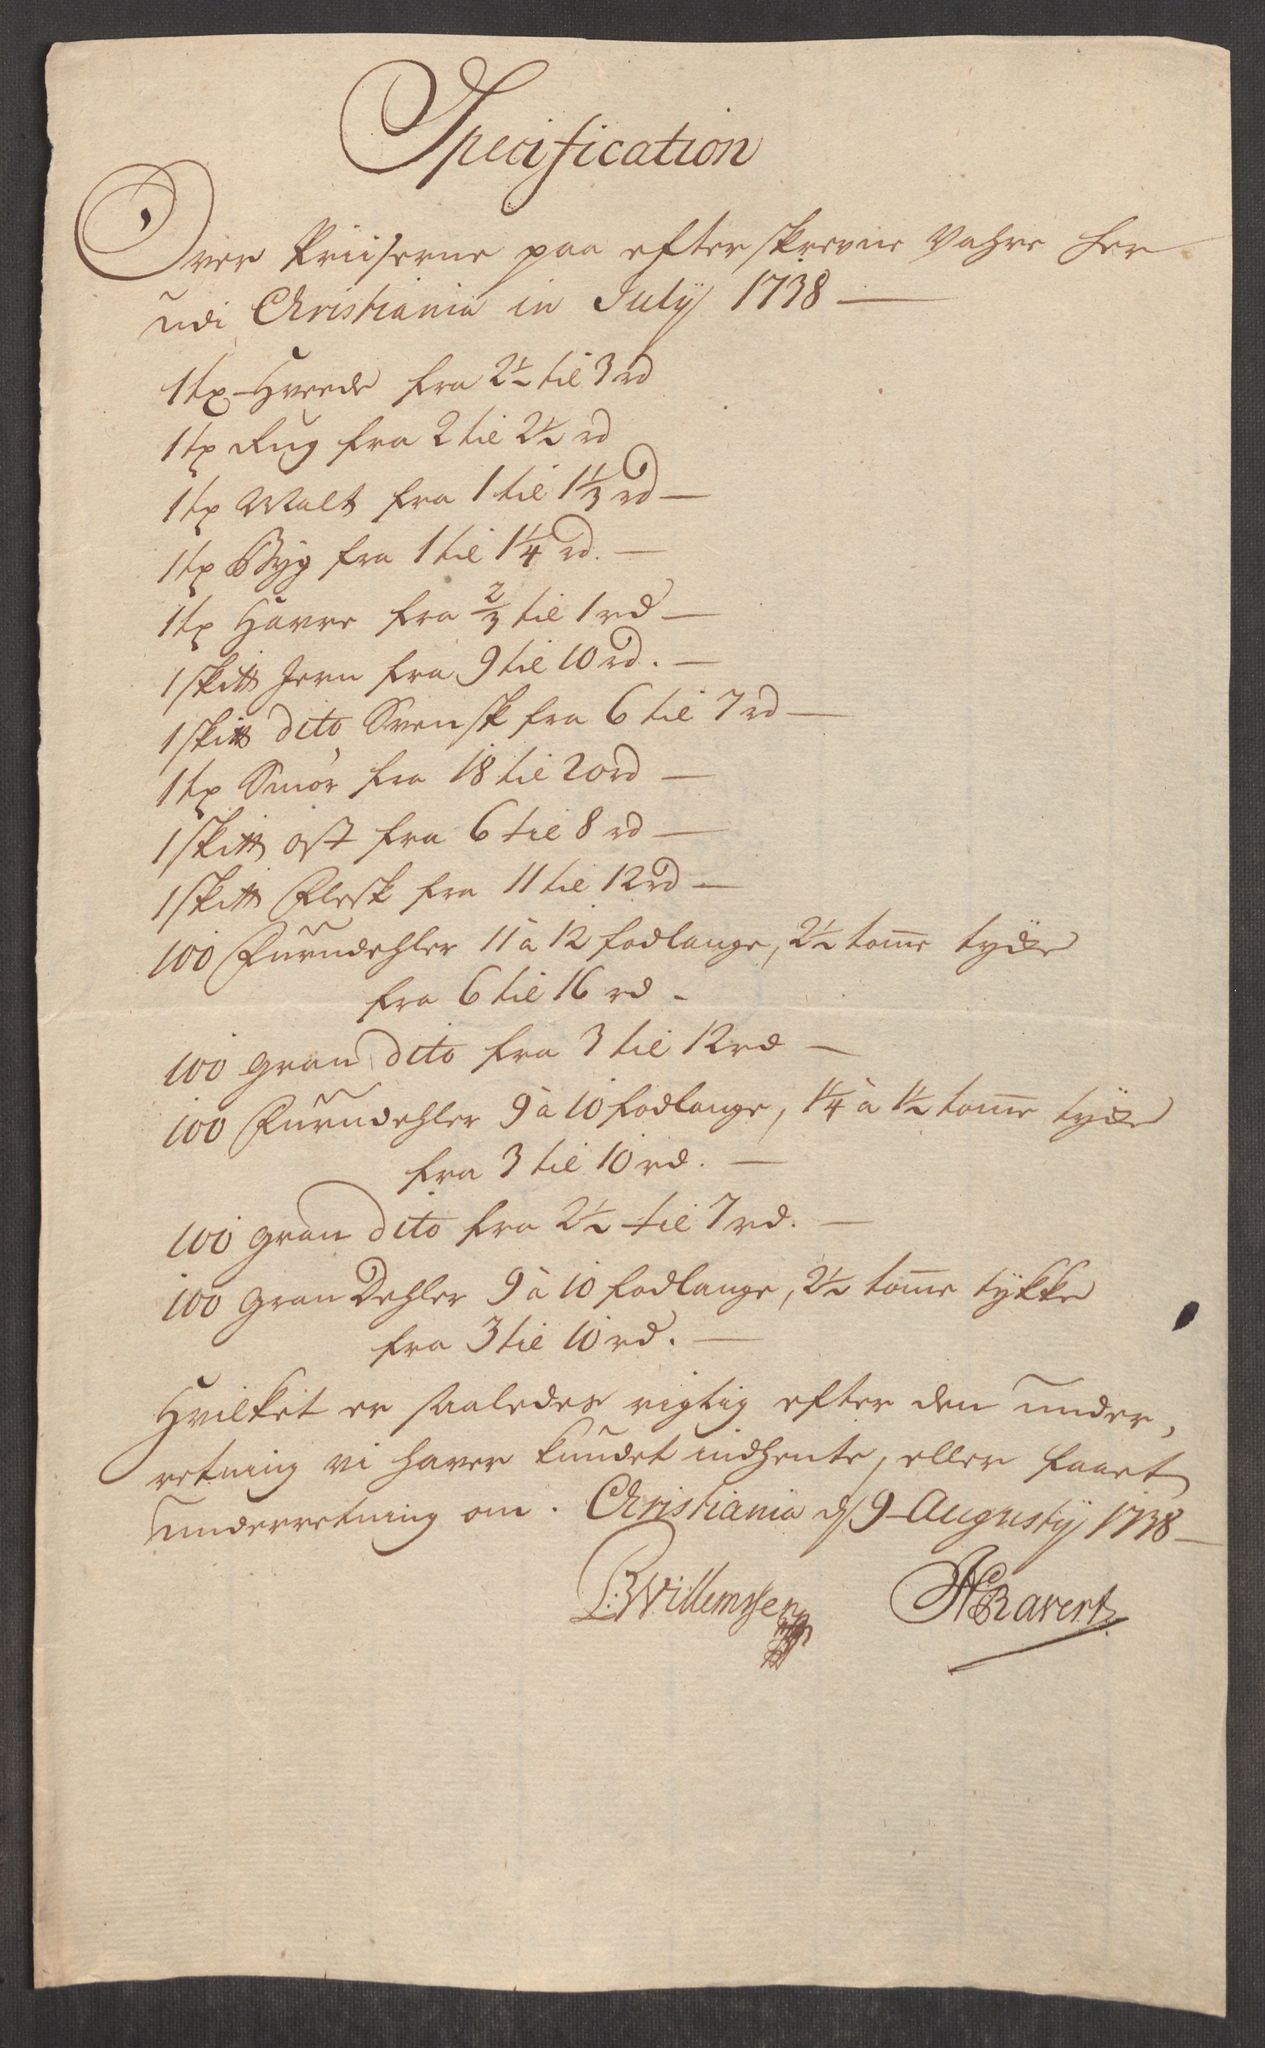 Specification
Over Priiserne paa efterskrevne Vahre her
udi Christiania in Julij 1738 —
1 tr Hveede fra 2½ til 3 rd
1 tr Rug fra 2 til 2½ rd
1 tr Malt fra 1 til 1⅓ rd —
1 tr Byg fra 1 til 1¼ rd. —
1 tr Havre fra ⅔ til 1 rd —
1 sk℔ Jern fra 9 til 10 rd. —
1 sk℔ dito Svensk fra 6 til 7 rd —
1 tr Smør fra 18 til 20 rd —
1 sk℔ ost fra 6 til 8 rd —
1 sk℔ Flesk fra 11 til 12 rd —
100 Furudehler 11 à 12 fodlange, 2½ tom̄e tyche
fra 6 til 16 rd -
100 gran dito fra 3 til 12 rd —
100 Furudehler 9 à 10 fodlange, 1¼ à 1½ tom̄e tyche
fra 3 til 10 rd. —
100 gran dito fra 2½ til 7 rd. —
100 gran Dehler 9 à 10 fodlange, 2½ tom̄e tÿkke
fra 3 til 10 rd. —
Hvilket er saaledes rigtig efter den under,
retning vi haver kundet indhente, eller faaet
underretning om. Christiania d 9 Augustij 1738 —
Willemsen Ravert